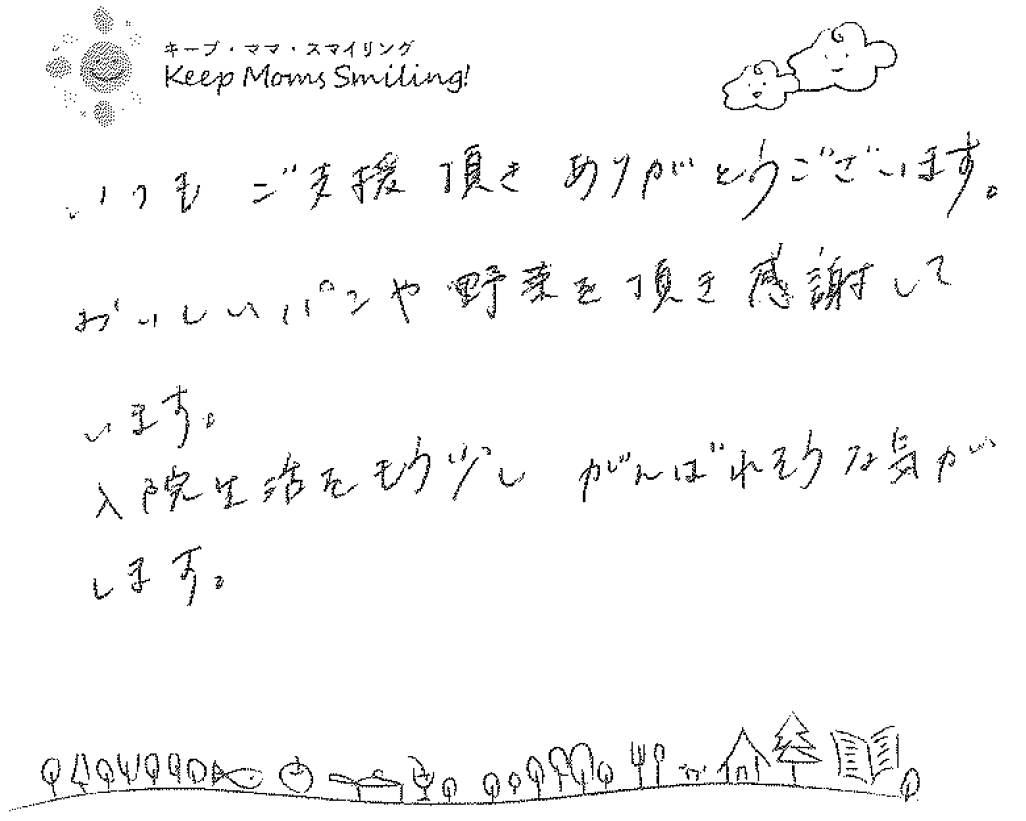 キープ・ママ・スマイリング
Keep Moms Smiling!
いつも ご支援 頂き ありがとうございます。
おいしいパンや 野菜を 頂き 感謝して
います。
入院生活をもう少し がんばれそうな気が
します。